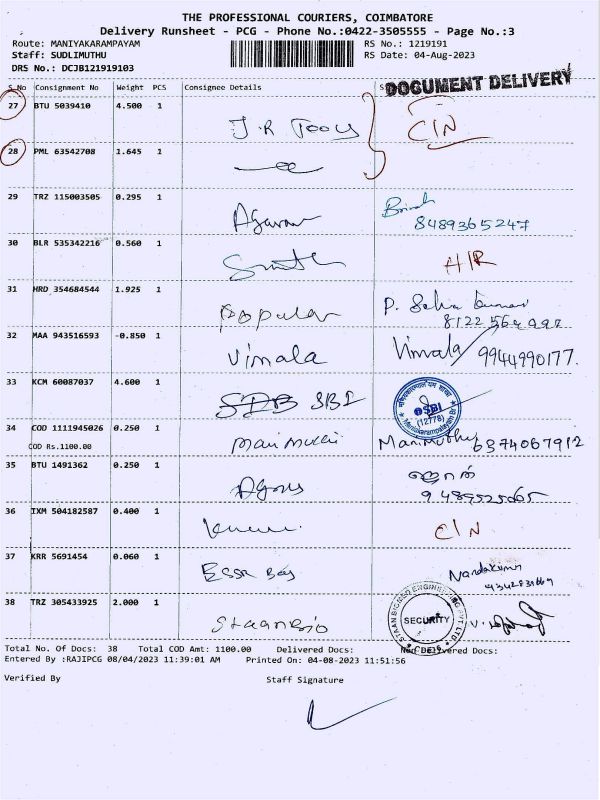 THE PROFESSIONAL COURIERS, COIMBATORE
Delivery Runsheet - PCG - Phone No.:0422-3505555 - Page No.:3
Route: MANIYAKARAMPAYAM RS No.: 1219191
Staff: SUDLIMUTHU RS Date: 04-Aug-2023
DRS No.: DCJB121919103
DOCUMENT DELIVERY
S.No Consignment No Weight PCS Consignee Details S
27 BTU 5039410 4.500 1 J.R Tools C/N
28 PML 63542708 1.645 1
29 TRZ 115003505 0.295 1 8489365247
30 BLR 535342216 0.560 1 H/R
31 HRD 354684544 1.925 1 Popular P.
32 MAA 943516593 -0.850 1 Vimala Vimala 9944990177.
33 KCM 60087037 4.600 1 SBI
SBI
(12778)
34 COD 1111945026 0.250 1 Marimuthu 6374067912
COD Rs.1100.00
35 BTU 1491362 0.250 1
36 IXM 504182587 0.400 1 C/N
37 KRR 5691454 0.060 1 Nandakumar
38 TRZ 305433925 2.000 1 Staanbio
STAAN BIOMED ENGINEERING PVT LTD
SECURITY
Total No. Of Docs: 38 Total COD Amt: 1100.00 Delivered Docs: Non Delivered Docs:
Entered By :RAJIPCG 08/04/2023 11:39:01 AM Printed On: 04-08-2023 11:51:56
Verified By Staff Signature